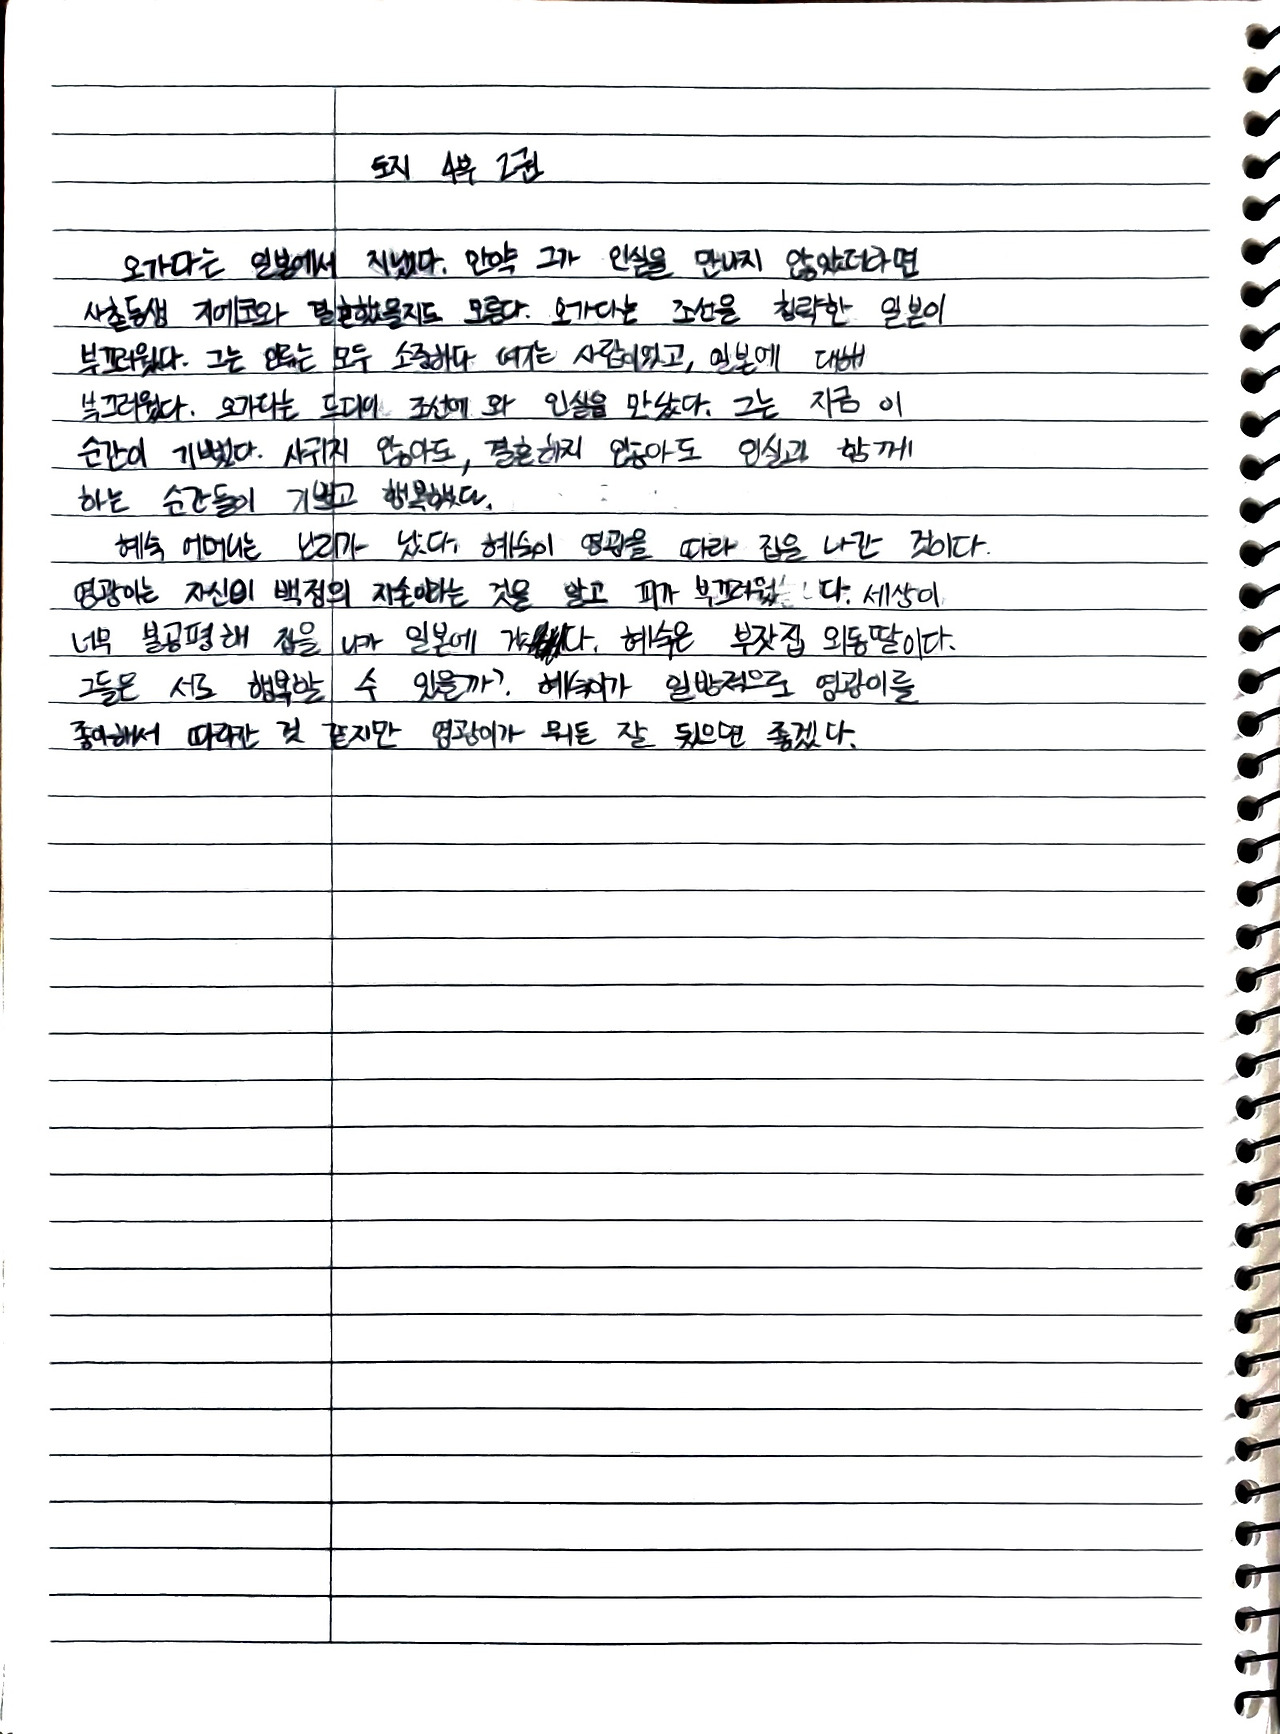 토지 4부 2권
오가다는 일본에서 지냈다. 만약 그가 인실을 만나지 않았더라면
사촌동생 지에코와 결혼했을지도 모른다. 오가다는 조선을 침략한 일본이
부끄러웠다. 그는 인류는 모두 소중하다 여기는 사람이었고, 일본에 대해
부끄러웠다. 오가다는 드디어 조선에 와 인실을 만났다. 그는 지금 이
순간이 기뻤다. 사귀지 않아도, 결혼하지 않아도 인실과 함께
하는 순간들이 기쁘고 행복했다.
혜숙 어머니는 난리가 났다. 혜숙이 영광을 따라 집을 나간 것이다.
영광이는 자신이 백정의 자손이라는 것을 알고 피가 부끄러웠다. 세상이
너무 불공평해 집을 나가 일본에 갔다. 혜숙은 부잣집 외동딸이다.
그들은 서로 행복할 수 있을까?. 혜숙이가 일방적으로 영광이를
좋아해서 따라간 것 같지만 영광이가 뭐든 잘 됬으면 좋겠다.